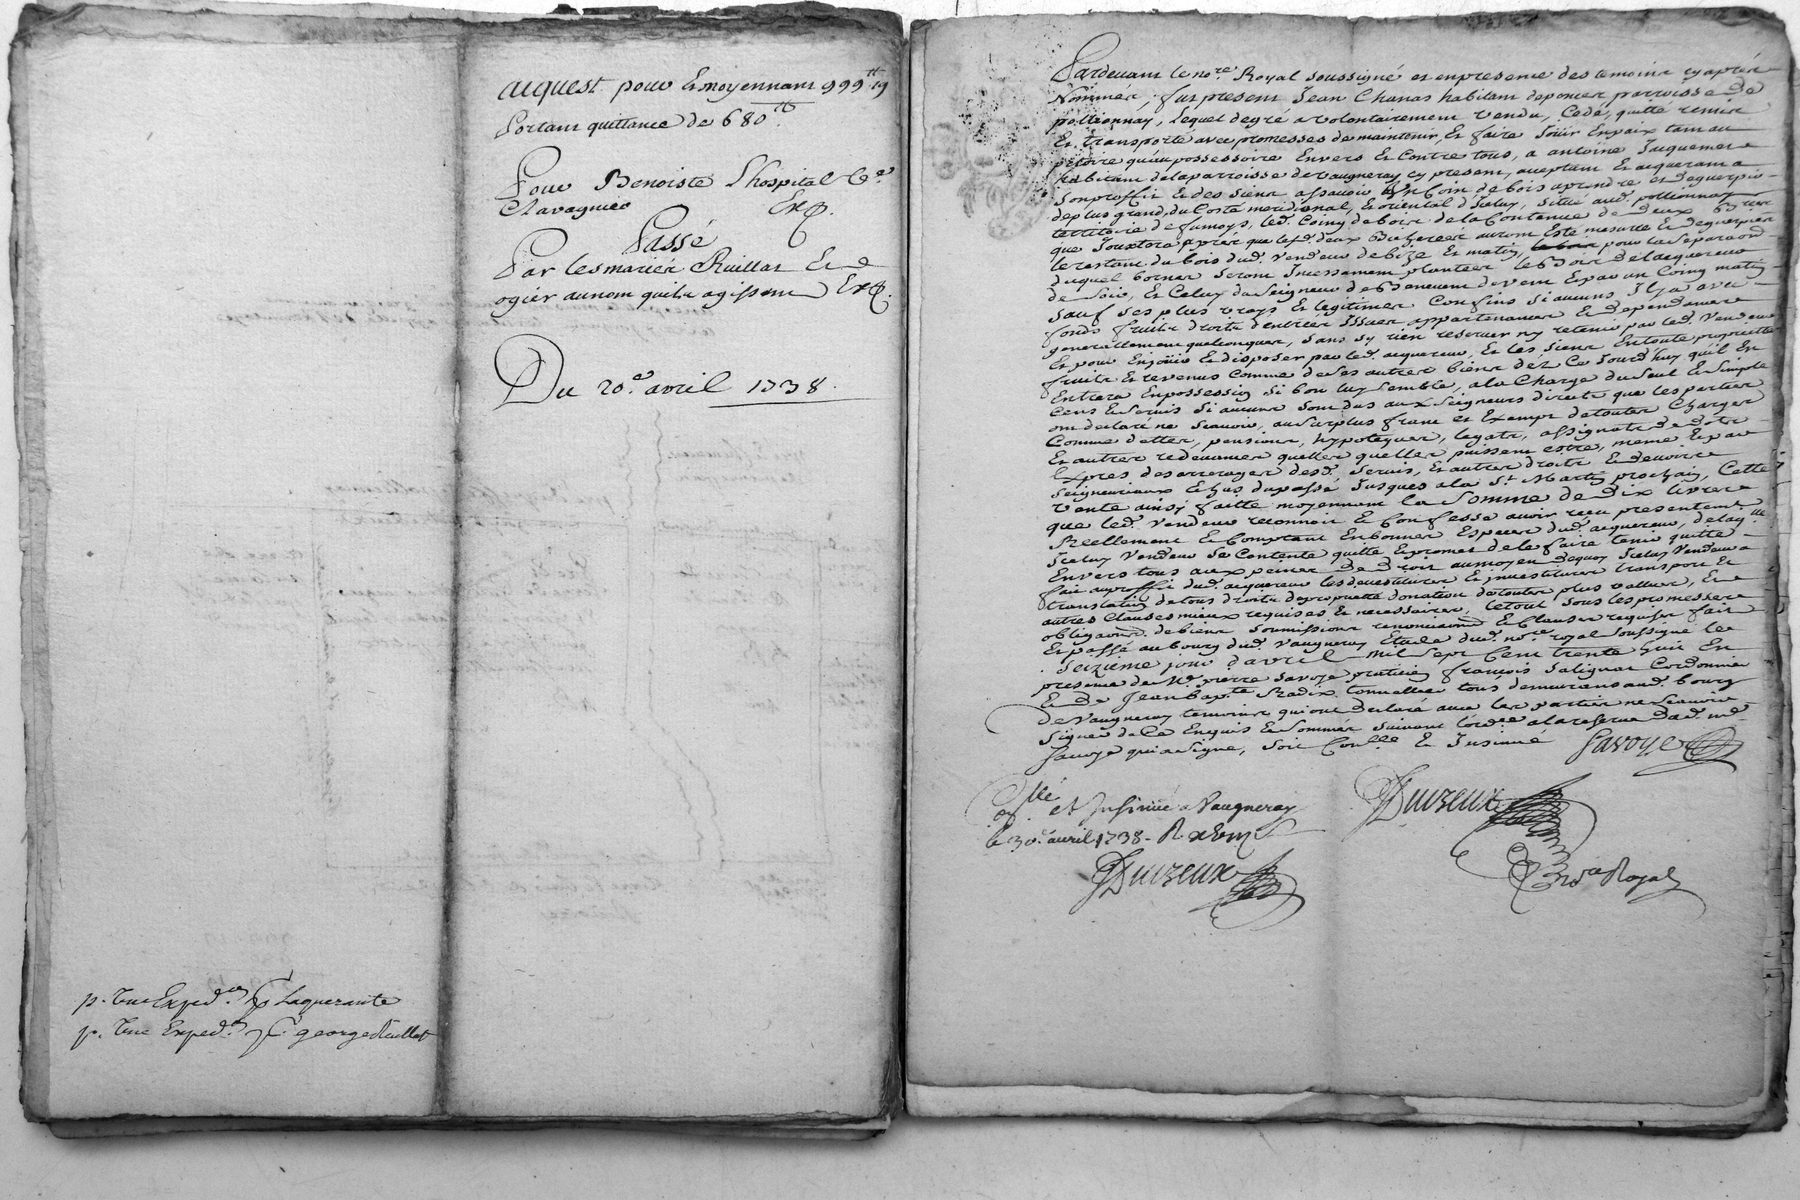 acquest pour Et moyennant 999 tt 19
Portant quittance de 680 tt
Pour Benoiste Lhospital Vve
Chavagnieu
Passé
Par les mariés Ruillat Et
ogier au nom quils agissent
Du 20e avril 1738.
p. Une Exped.on Laquerante
p. Une Exped.on george Ruillat
Pardevant le nore Royal soussigné et en presence des temoins cy après
Nommés, fut present Jean Chanas habitant de ponier parroisse de
pollionnay, Lequel de gré a volontairement vendu, Cedé, quitté remis
Et transporté avec promesses de maintenir, Et faire Jouir En paix tant au
petoire quau possessoire Envers Et Contre tous, a antoine Jaquemet
habitant de la parroisse de vaugneray cy present, aceptant Et aquerant a
son proffit Et des siens assavoir Un Coin de bois a prendre et deguerpir
de plus grand, du Costé meridional Et oriental d'Iceluy, situé aud. pollionnay
territoire de fumoys, led. Coing de bois de la Contenue de deux
que Jouxtera après que lesd. deux Bicherées auront Esté mesurée Et deguerpies
le restant du bois dud. vendeur de bize Et matin, pour la separaon
duquel bornes seront Incessament plantées le bois de lacquereur
de soir, Et Celuy du seigneur de Et par un Coing matin
sauf ses plus vrays Et legitimes Confins si aucuns Il y a avec
fonds fruits droits d'entrées Issues appartenances Et dependances
generallement quelconques, sans sy rien reserver ny retenir par led. Vendeur
Et pour En jouir Et disposer par led. acquereur, Et les siens En toute proprieté
fruits Et revenus Comme de ses autres biens déz Ce Jourdhuy quil En
Entrera En possession si bon luy semble, a la Charge du seul Et simple
Cens Et servis si aucuns sont dus aux seigneurs directs que les parties
ont declaré ne scavoir, au surplus franc et Exempt de toutes Charges
Comme dettes, pensions, hypoteques, legats, assignats de dots
Et autres redevances quelles quelles puissent estre, meme Et par
Exprés des arrerages desd. servis, Et autres droits Et devoirs
seigneuriaux Echus du passé Jusques a la St. Martin prochain, Cette
vente ainsy faitte moyennant la somme de Dix livres
que led. vendeur reconnoit Et Confesse avoir reçu presentemt.
Reellement Et Comptant En bonnes Especes dud. acquereur, de laqlle
Iceluy vendeur se Contente quitte Et promet de le faire tenir quitte
Envers tous aux peines de Droit au moyen dequoy Iceluy vendeur a
fait au proffit dud. acquereur les devestitures Et investitures transport Et
translation de tous droits de proprieté donation de toutes plus vallues, Et
autres Clauses mieux requises Et necessaires, le tout sous les promesses
obligaons. de biens soumissions renonciaons Et Clauses requises fait
Et passé au bourg dud. Vaugneray Etude dud. nore royal soussigné le
seizieme jour d'avril mil sept Cent trente huit En
presence de Me. pierre savoye praticien françois salignat Cordonnier
Et de Jean bapte. Radix tonnellier tous demeurants aud. bourg
de Vaugneray temoins qui ont declaré avec les parties ne scavoir
signer de Ce Enquis Et sommés suivant lordce a la reserve dud. me.
savoye qui a signé, soit Conllé Et Insinué Savoye
Duizeux
Nore Royal
Conllé et Insinué a Vaugneray
le 30e avril 1738 -
Duizeux